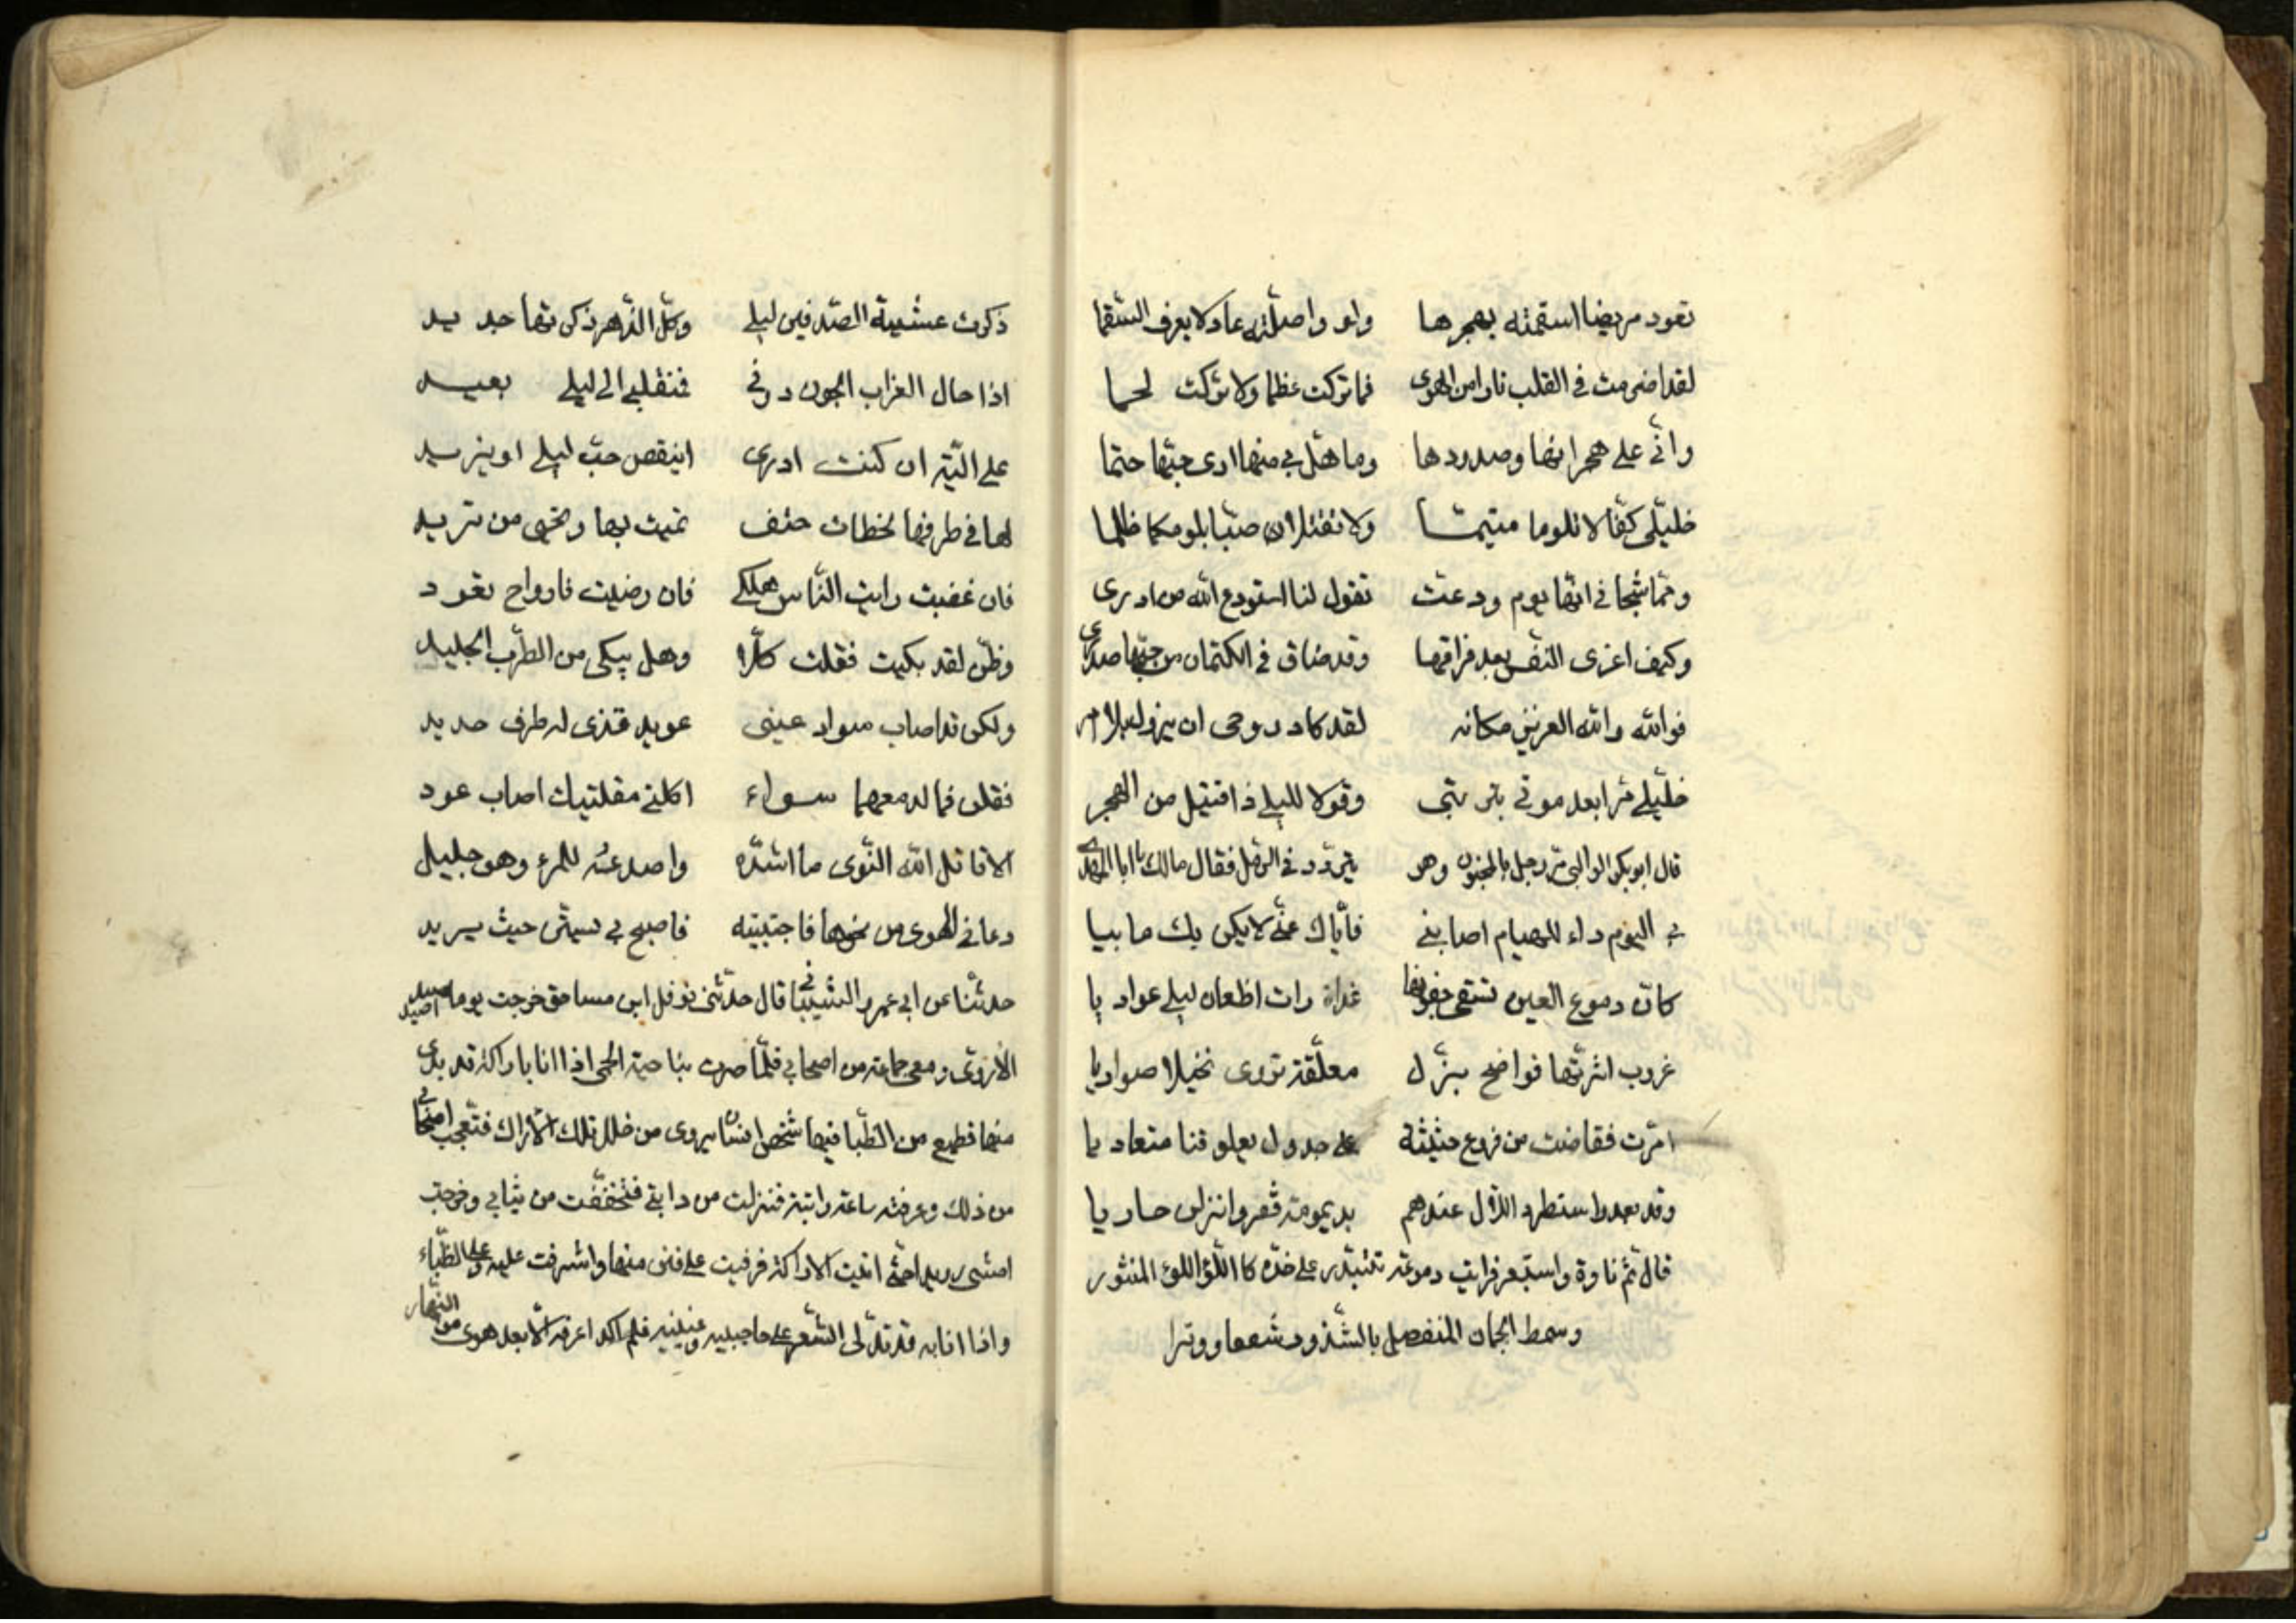 تعود مريضا اسقمته بهجرها ولو واصلته عاد لا يعرف السقما
لقد اضرمت في القلب نارا من الهوى فما تركت عظما ولا تركت لحما
واني على هجرانها وصدودها وما حل بي منها ارى حبها حتما
خليلي كفا لا تلوما متيما ولا تقتلا صبا بلومكما ظلما
ومما شجاني انها يوم ودعت تقول لنا استودع الله من ادرى
وكيف اعزى النفس بعد فراقها وقد ضاق في الكتمان من حبها صدرى
فوالله والله العزيز مكانه لقد كاد روحى ان يزول بلا امر
خليلي مرا بعد موتي بتربتي وقولا لليلي ذا قتيل من الهجر
قال ابو بكر الوالبي مر رجل بالمجنون وهو يتردد في الرمل فقال مالك يا ابا المهدى
بي اليوم داء للهيام اصابني فاياك عني لا يكن بك ما بيا
كان دموع العين تسقى جفونها غداة رات اظعان ليلي غواديا
غروب اثرتها نواضح بزل معلقة تروى نخيلا صواديا
امرت ففاضت من فروع حثيثة على جدول يعلو قنا متعاديا
وقد بعدوا واستطرد الال عندهم بديمومة قفر وانزلن حاديا
قال ثم تاوه واستعبر فرايت دموعه تتبدر على خده كاللؤلؤ المنثور
وسمط الجمان المنفصل بالشذور شفعا ووترا
ذكرت عشية الصدفين ليلي وكل الدهر ذكرتها جديد
اذا حال الغراب الجون دوني فنقلبي الى ليلي بعيد
على الية ان كنت ادرى اينقص حب ليلي او يزيد
لها في طرفها لحظات حتف تميت بها وتحيى من تريد
فان غضبت رايت الناس هلكى فان رضيت فارواح تعود
وظن لقد بكيت فقلت كلا وهل يبكى من الطرب الجليد
ولكن قد اصاب سواد عينى عويد قذى له طرف حديد
فقلن فما لدمعهما سواء اكلتي مقلتيك اصاب عود
الا قاتل الله النوى ما اشده واصدعه للمرء وهو جليل
دعاني الهوى من نحوها فاجتبيته فاصبح بي يستن حيث يريد
حدثنا عن ابي عمرو الشيباني قال حدثني نوفل ابن مساحق خرجت يوما اصيد
الاروى ومعى جماعة من اصحابي فلما صرت بناحية الحمى اذا انا باراكة قد بدى
منها قطيع من الظبا فيها شخص انسان يروى من خلل تلك الاراك فتعجب اصحابي
من ذلك وعرفته ساعة رايته فنزلت من دابتي فتخففت من ثيابي وخرجت
امشى رويدا حتى اتيت الاراكة فرقيت على فنن منها واشرفت عليه وعلى الظباء
واذا انا به قد تدلى الشعر على حاجبيه وعينيه فلم اكد اعرفه الا بعد هوى من النهار